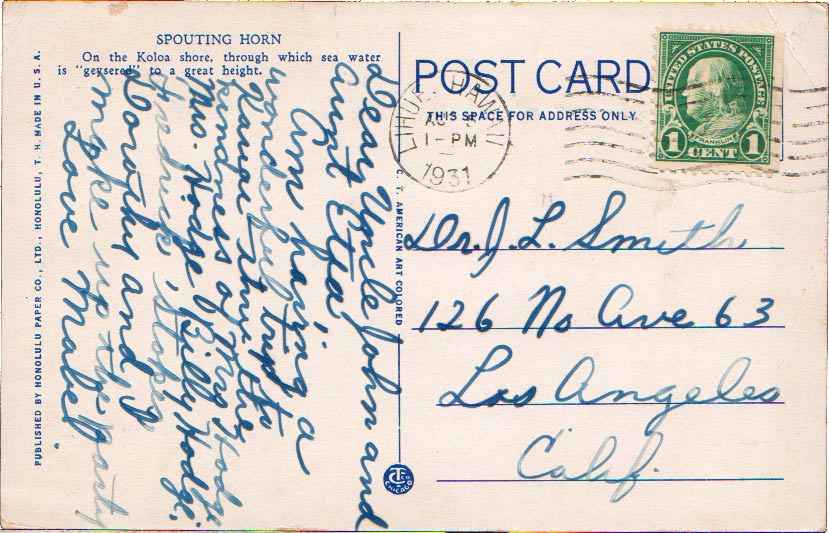 SPOUTING HORN
On the Koloa shore, through which sea water
is "geysered" to a great height.
PUBLISHED BY HONOLULU PAPER CO., LTD., HONOLULU, T. H. MADE IN U. S. A.
Dear Uncle John and
Aunt Etta
Am having a
wonderful trip to
Kauai thru the
kindness of Mrs Hodge
Mrs. Hodge, Billy Hodge,
Fredrick Stokes
Dorothy and I
make up the party
Love Mabel
C. T. AMERICAN ART COLORED
POST CARD
THIS SPACE FOR ADDRESS ONLY
LIHUE, HAWAII
1-PM
1931
UNITED STATES POSTAGE
FRANKLIN
1 CENT 1
Dr. J. L. Smith
126 No Ave 63
Los Angeles
Calif.
CHICAGO